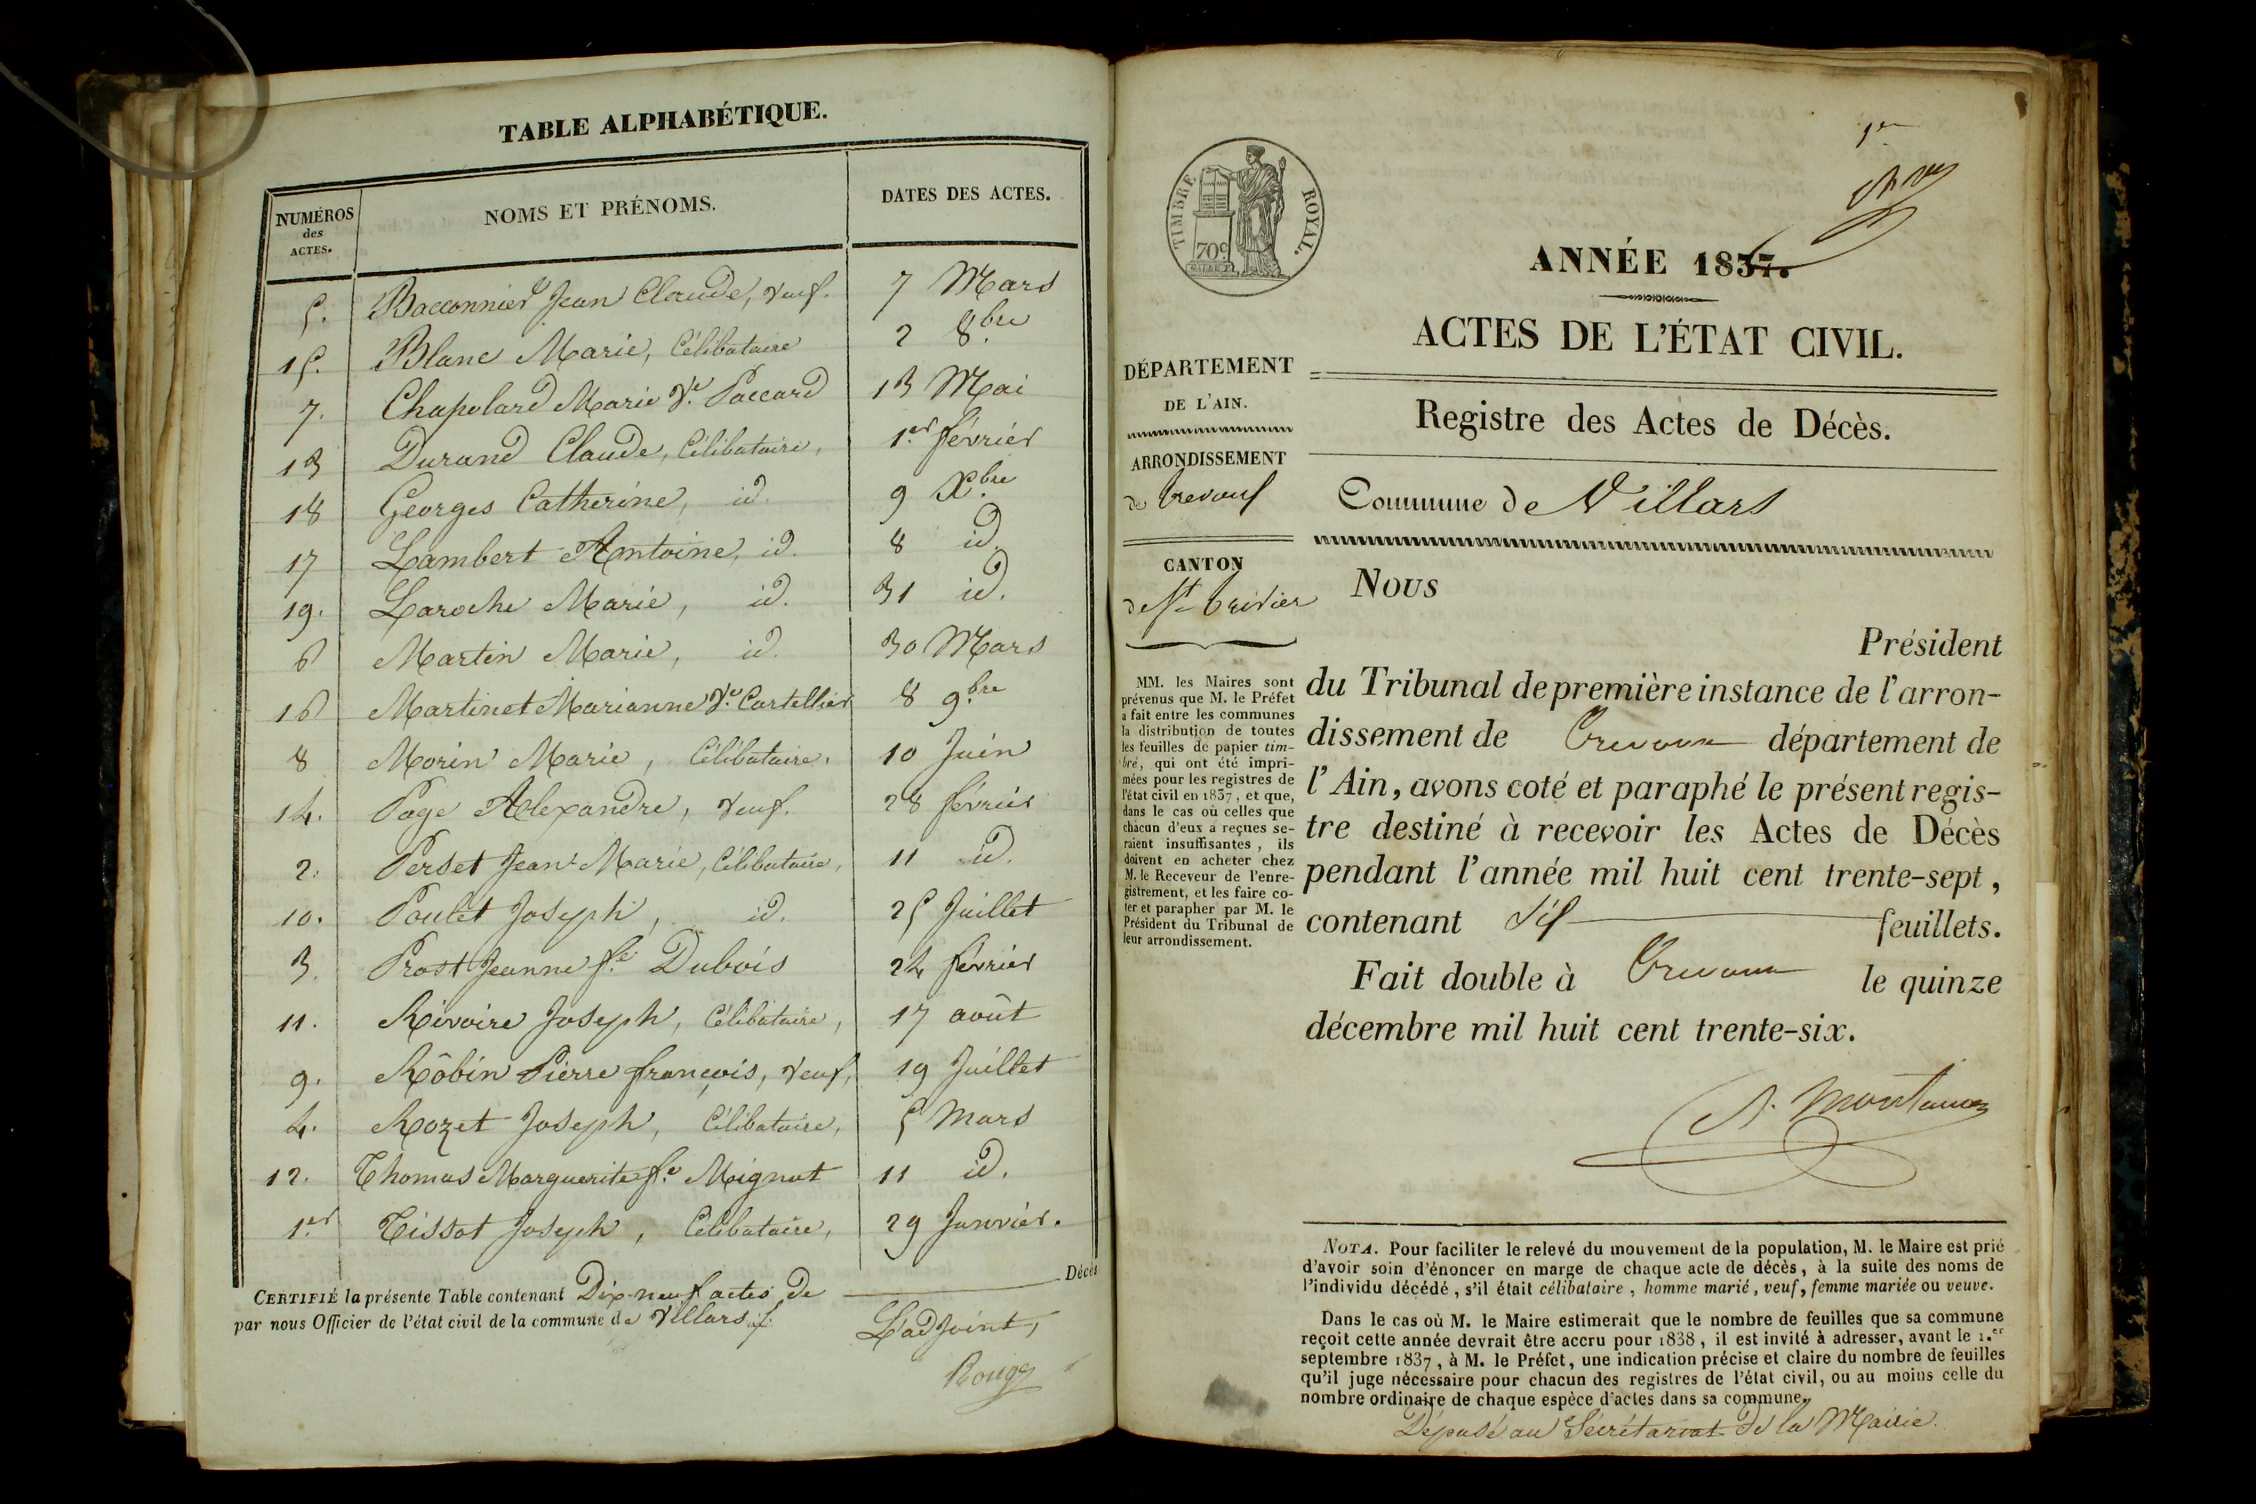 TABLE ALPHABÉTIQUE.
NUMÉROS des ACTES. NOMS ET PRÉNOMS. DATES DES ACTES.
5. Bacconnier Jean Claude, veuf. 7 Mars
15. Blanc Marie, Célibataire 2 8.bre
7. Chapelard Marie V.e Paccard 13 Mai
13 Durand Claude, Célibataire, 1.er février
18 Georges Catherine, id. 9 X.bre
17 Lambert Antoine, id. 8 id.
19. Laroche Marie, id. 31 id.
6 Martin Marie, id. 30 Mars
16 Martinet Marianne V.e Cartellier 8 9.bre
8 Morin Marie, Célibataire. 10 Juin
14. Page Alexandre, veuf. 28 février
2. Perset Jean-Marie, Célibataire, 11 id.
10. Poulet Joseph, id. 25 Juillet
3. Prost Jeanne f.e Dubois 24 février
11. Rivoire Joseph, Célibataire, 17 août
9. Rôbin Pierre françois, veuf, 19 Juillet
4. Rozet Joseph, Célibataire, 5 Mars
12. Thomas Marguerite f.e Mignat 11 id.
1.er Tissot Joseph, Célibataire, 29 Janvier.
CERTIFIÉ la présente Table contenant Dix-neuf actes de Décès
par nous Officier de l'état civil de la commune de Villars
L'adjoint,
Rouge
1er
TIMBRE ROYAL.
70c
ANNÉE 1837.
ACTES DE L'ÉTAT CIVIL.
DÉPARTEMENT
DE L'AIN.
ARRONDISSEMENT
de trevoux
CANTON
de St trivier
MM. les Maires sont
prévenus que M. le Préfet
a fait entre les communes
la distribution de toutes
les feuilles de papier tim-
bré, qui ont été impri-
mées pour les registres de
l'état civil en 1837, et que,
dans le cas où celles que
chacun d'eux a reçues se-
raient insuffisantes, ils
doivent en acheter chez
M. le Receveur de l'enre-
gistrement, et les faire co-
ter et parapher par M. le
Président du Tribunal de
leur arrondissement.
Registre des Actes de Décès.
Commune de Villars
NOUS
Président
du Tribunal de première instance de l'arron-
dissement de Trevoux département de
l'Ain, avons coté et paraphé le présent regis-
tre destiné à recevoir les Actes de Décès
pendant l'année mil huit cent trente-sept,
contenant six feuillets.
Fait double à Trevoux le quinze
décembre mil huit cent trente-six.
NOTA. Pour faciliter le relevé du mouvement de la population, M. le Maire est prié
d'avoir soin d'énoncer en marge de chaque acte de décès, à la suite des noms de
l'individu décédé, s'il était célibataire, homme marié, veuf, femme mariée ou veuve.
Dans le cas où M. le Maire estimerait que le nombre de feuilles que sa commune
reçoit cette année devrait être accru pour 1838, il est invité à adresser, avant le 1.er
septembre 1837, à M. le Préfet, une indication précise et claire du nombre de feuilles
qu'il juge nécessaire pour chacun des registres de l'état civil, ou au moins celle du
nombre ordinaire de chaque espèce d'actes dans sa commune.
Déposé au Sécrétariat de la Mairie.